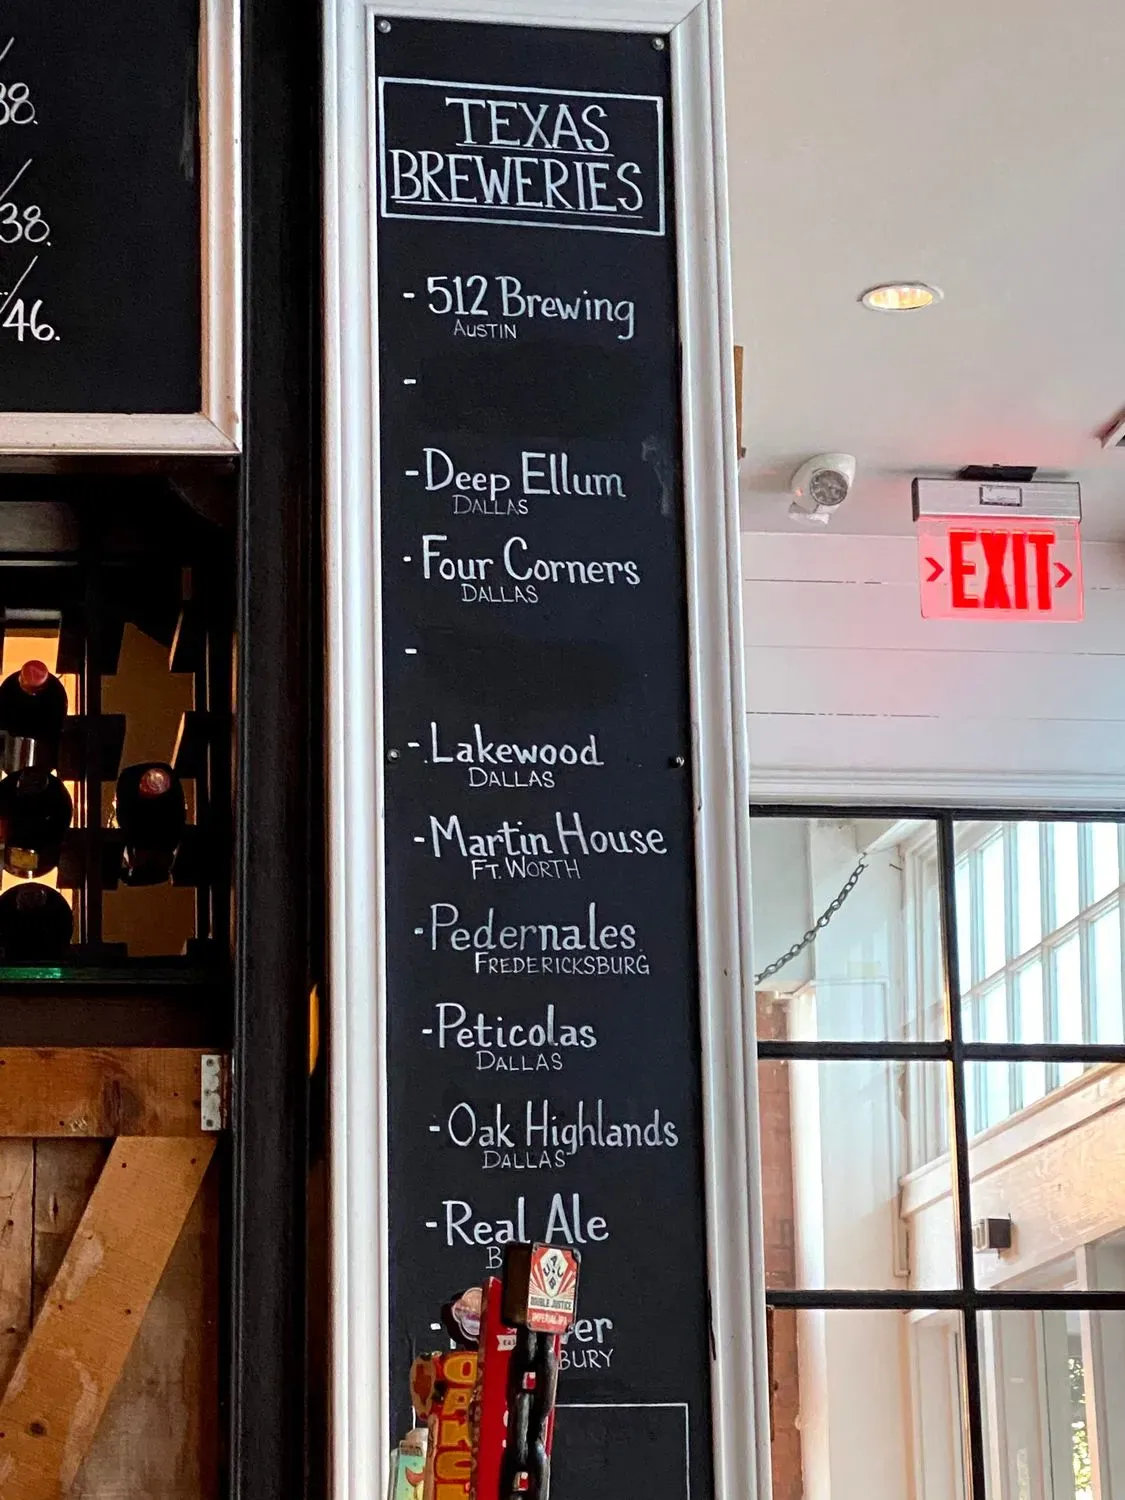 38.
38.
46.
TEXAS
BREWERIES
- 512 Brewing
AUSTIN
-
- Deep Ellum
DALLAS
- Four Corners
DALLAS
-
- Lakewood
DALLAS
- Martin House
FT. WORTH
- Pedernales
FREDERICKSBURG
- Peticolas
DALLAS
- Oak Highlands
DALLAS
- Real Ale
B
- er
BURY
DOUBLE JUSTICE
IMPERIAL IPA
EXIT